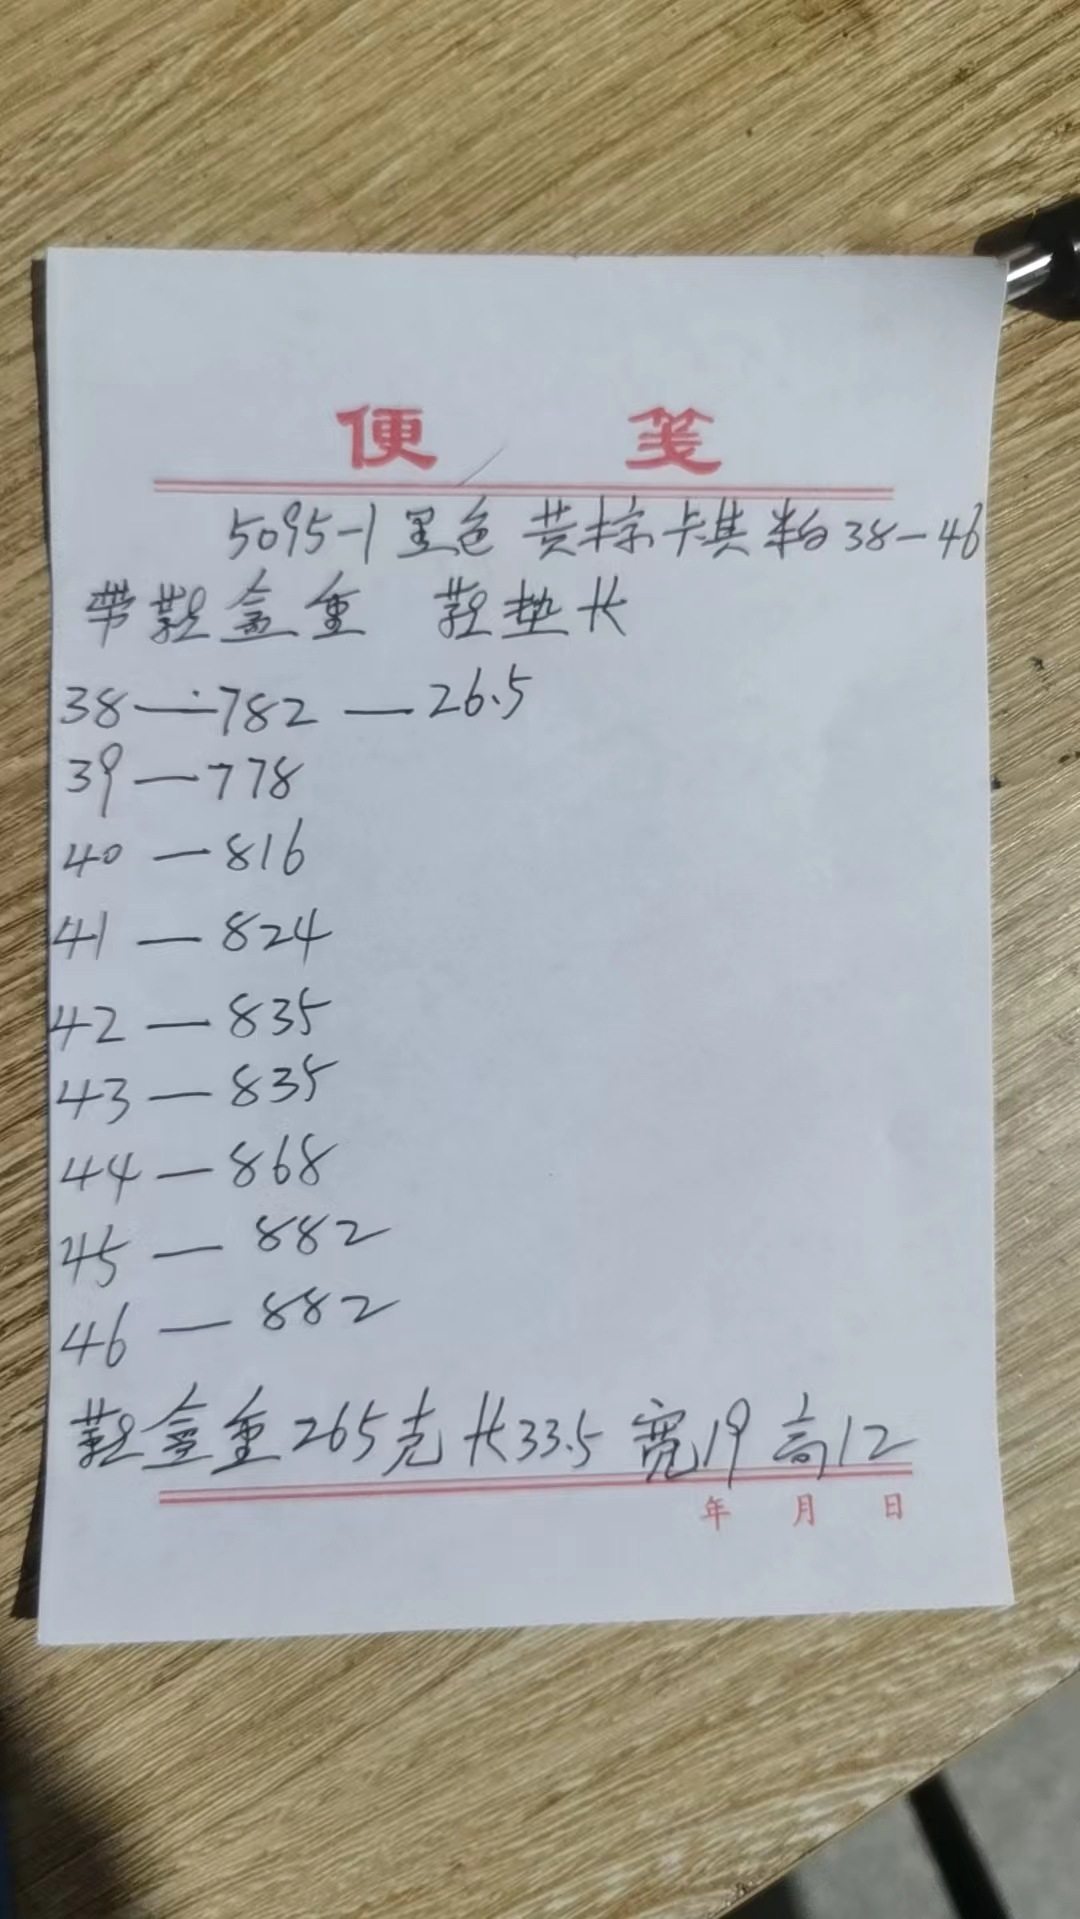 便 笺
5095-1 黑色 黄棕 卡其 米白 38-46
带鞋盒重 鞋垫长
38—782—26.5
39—778
40—816
41—824
42—835
43—835
44—868
45—882
46—882
鞋盒重265克 长33.5 宽19 高12
年 月 日